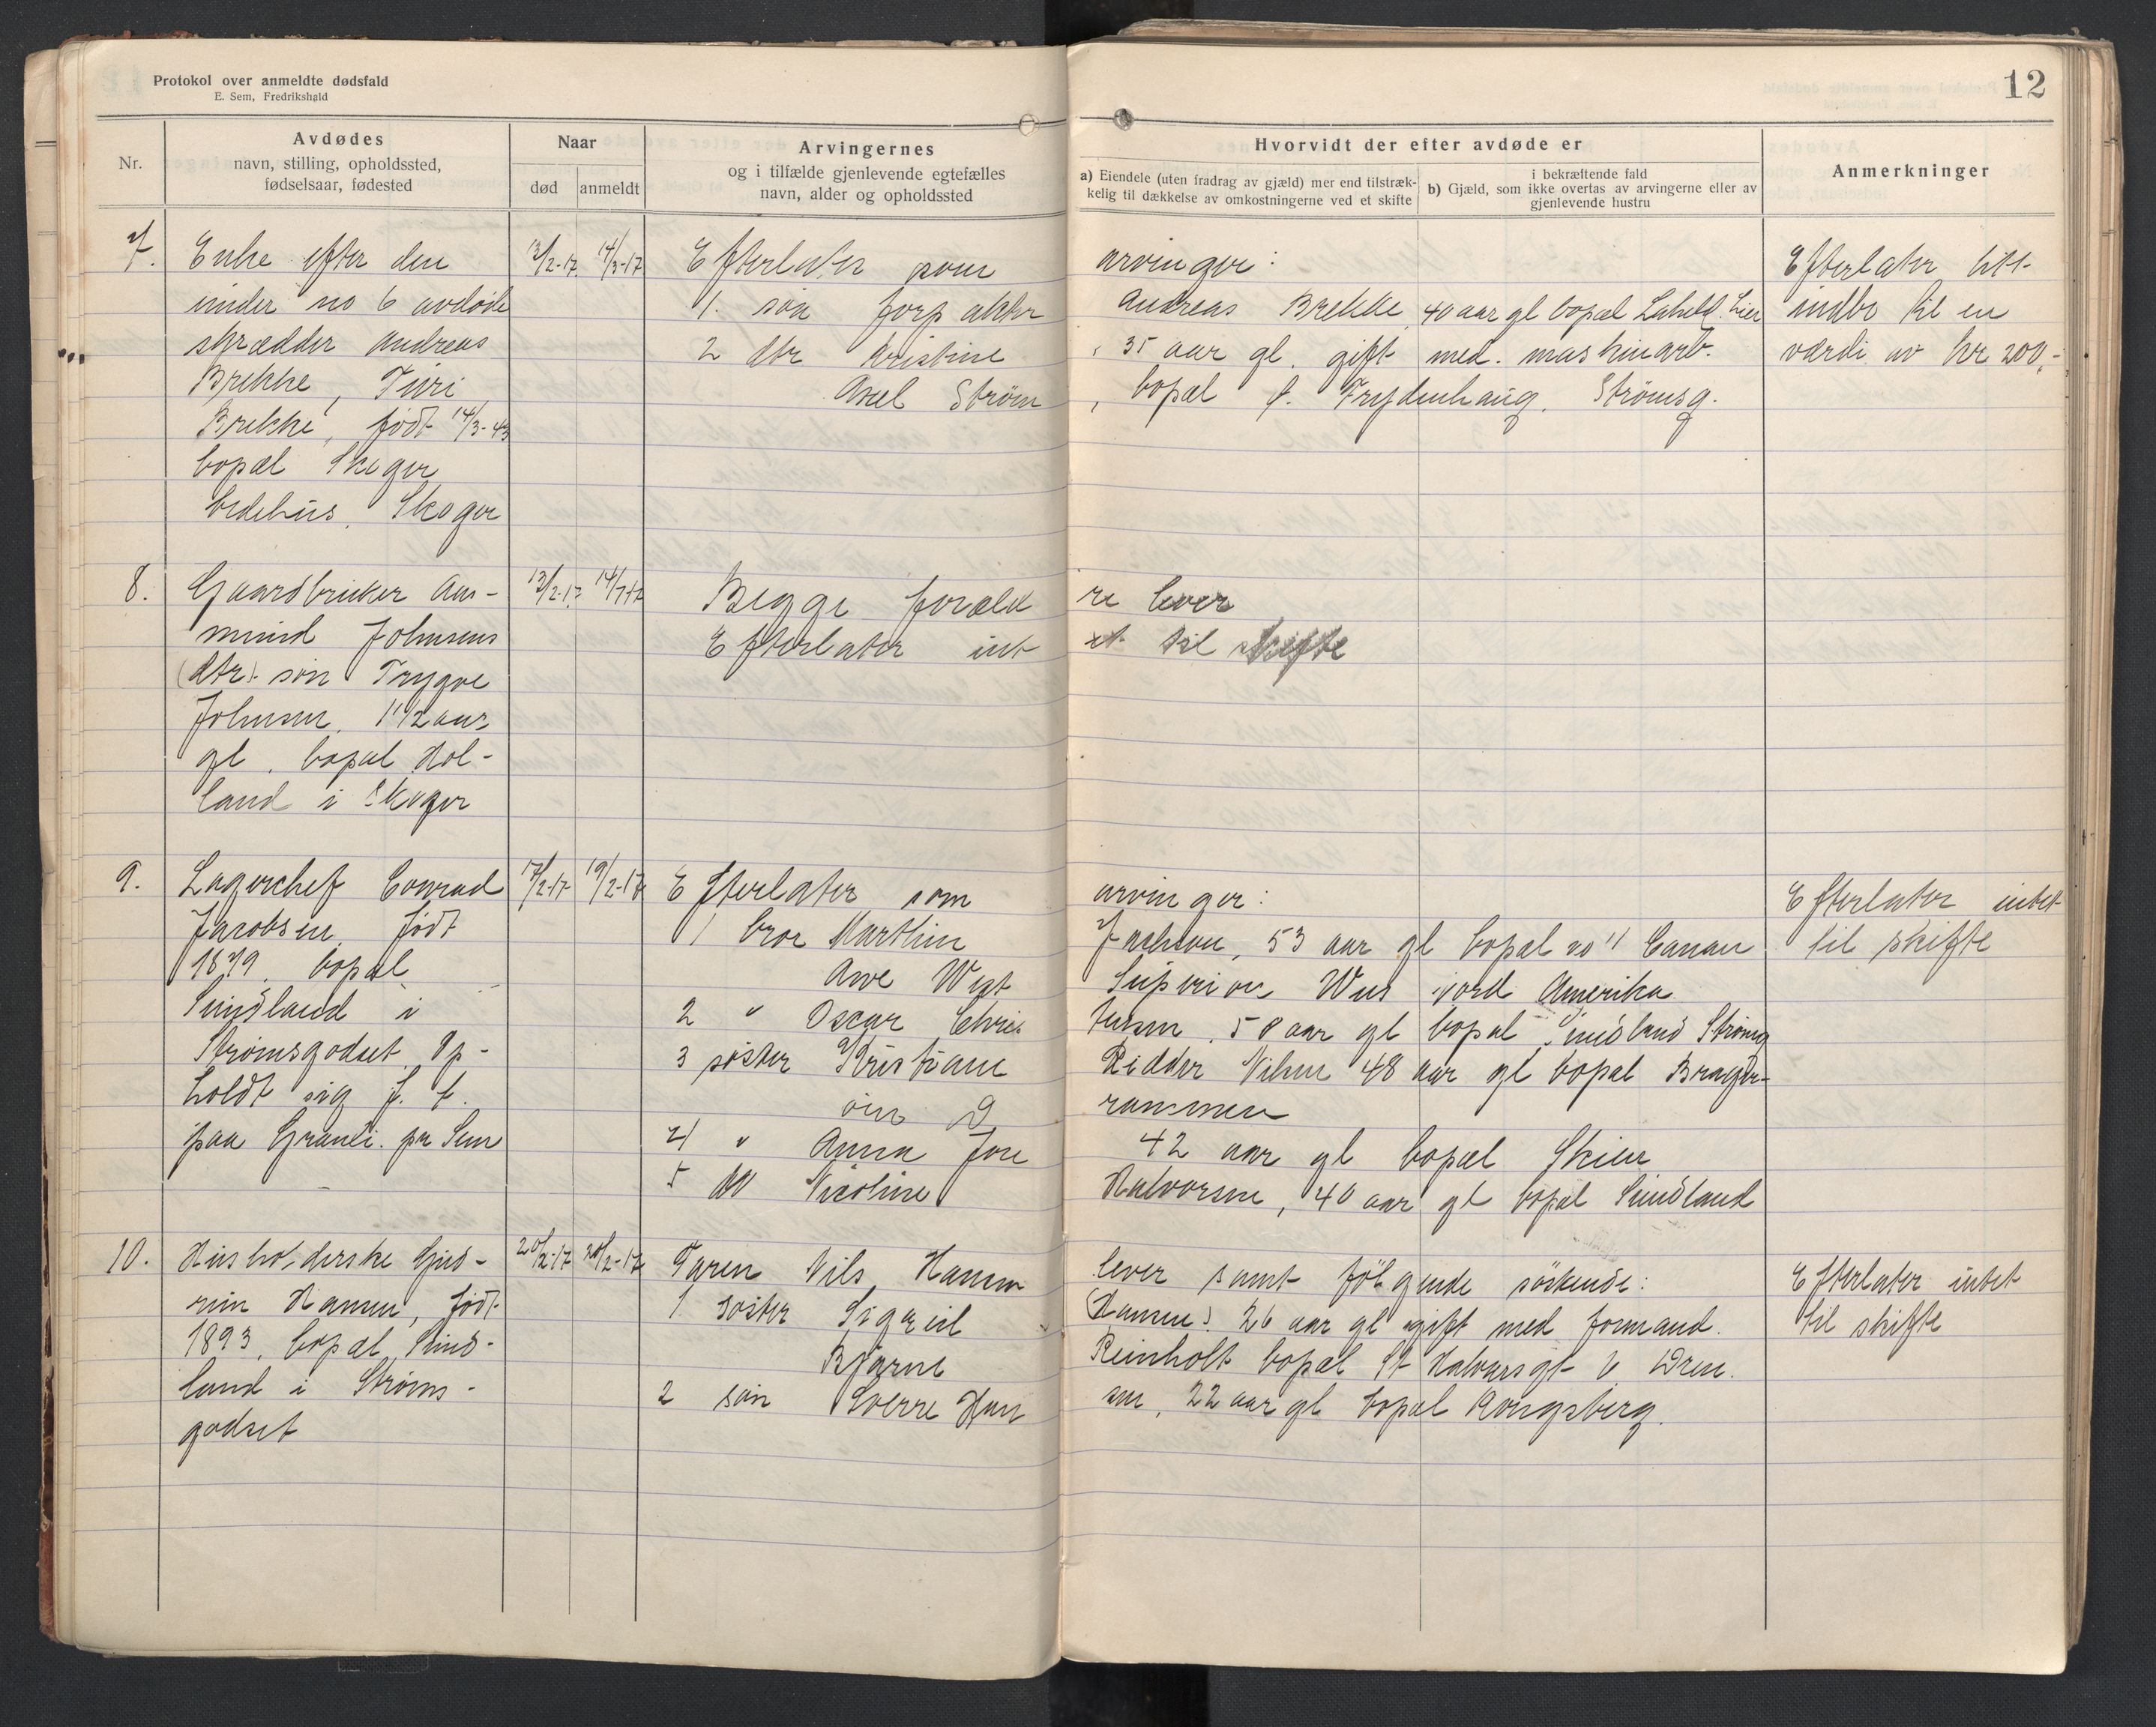 Protokol over anmeldte dødsfald
E. Sem, Fredrikshald
12
Nr.
Avdødes
navn, stilling, opholdssted,
fødselsaar, fødested
Naar
død
anmeldt
Arvingernes
og i tilfælde gjenlevende egtefælles
navn, alder og opholdssted
Hvorvidt der efter avdøde er
a) Eiendele (uten fradrag av gjæld) mer end tilstræk-
kelig til dækkelse av omkostningerne ved et skifte
i bekræftende fald
b) Gjæld, som ikke overtas av arvingerne eller av
gjenlevende hustru
Anmerkninger
7.
Enke efter den
under no 6 avdøde
skrædder Andreas
Brekke, Turi
Brekke, født 14/3-43
bopæl Skoger
bedehus, Skoger
13/2-17. 14/3-17
Efterlater som arvinger:
1. søn forp akter Andreas Brekke, 40 aar gl bopæl Lier
2 dtr Kristine, 35 aar gl. gift med. maskinarb.
Axel Strøm, bopæl p. Frydenhaug. Strømsg.
Efterlater litt
indbo til en
værdi av kr 200,-
8.
Gaardbruker Aas-
mund Johnsens
(dtr). søn Trygve
Johnsen, 1 1/2 aar
gl. bopæl Hol-
land i Skoger
13/2-17
Begge foræld re lever
Efterlater int et til skifte
9.
Lagerchef Conrad
Jacobsen født
bopæl
Sundland i
Strømsgodset. Op-
holdt sig f. t.
paa Granli. pr Sem
17/2-17 19/2-17
Efterlater som arvinger:
1 bror Marthin Jackson, 53 aar gl bopæl no 11
Ave West Superior Wis nord Amerika
2 " Oscar Chris tensen, 50 aar gl bopæl Sundland Strømsg
3 søster Kristiane Ridder Nilsen 48 aar gl bopæl Brager-
øen D rammen
4 " Anna 42 aar gl bopæl Skien
5 do Nicoline Halvorsen, 40 aar gl bopæl Sundland
Efterlater intet
til skifte
10.
Husholderske Gud-
run Hansen, født
1893, bopæl Sund-
land i Strøms-
godset
20/2-17 20/2-17
Faren Nils Hansen lever samt følgende søskende:
1. søster Sigrid (Hansen). 26 aar gl gift med formand.
Bjarne Reinholt bopæl St Halvarsgt D Dren.
2 søn Sverre Han sen, 22 aar gl bopæl Kongsberg.
Efterlater intet
til skifte